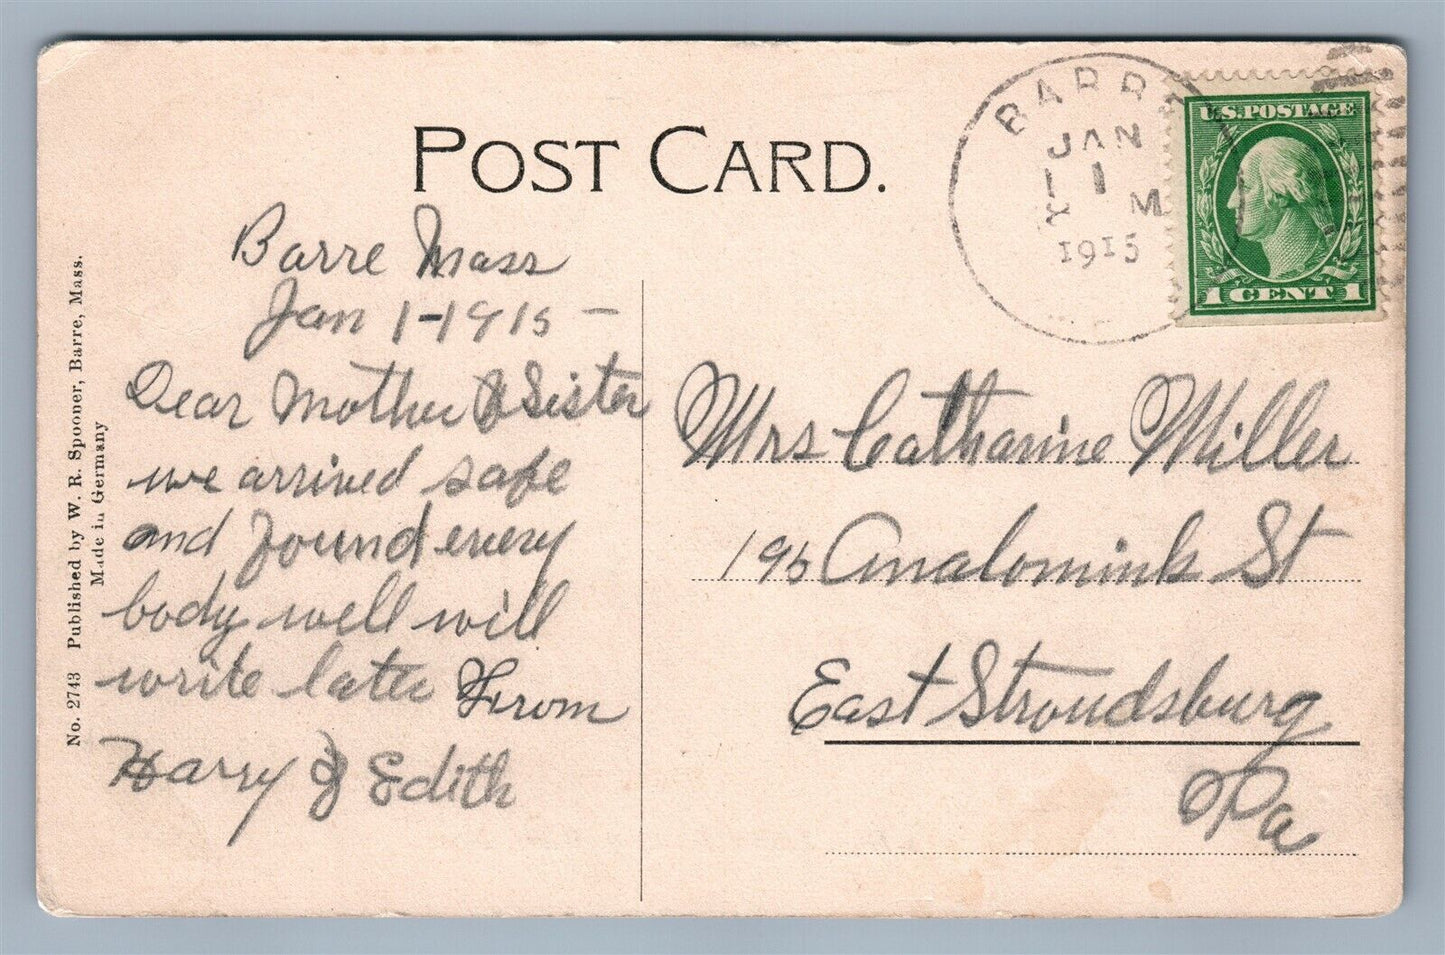 POST CARD.
BARRE
JAN
1
M
1915
U.S. POSTAGE
1 CENT 1
Barre Mass
Jan 1-1915 -
Dear Mother & Sister
we arrived safe
and found every
body well will
write later From
Harry & Edith
Mrs Catharine Miller
195 Analomink St
East Stroudsburg
Pa
No. 2743 Published by W. R. Spooner, Barre, Mass.
Made in Germany